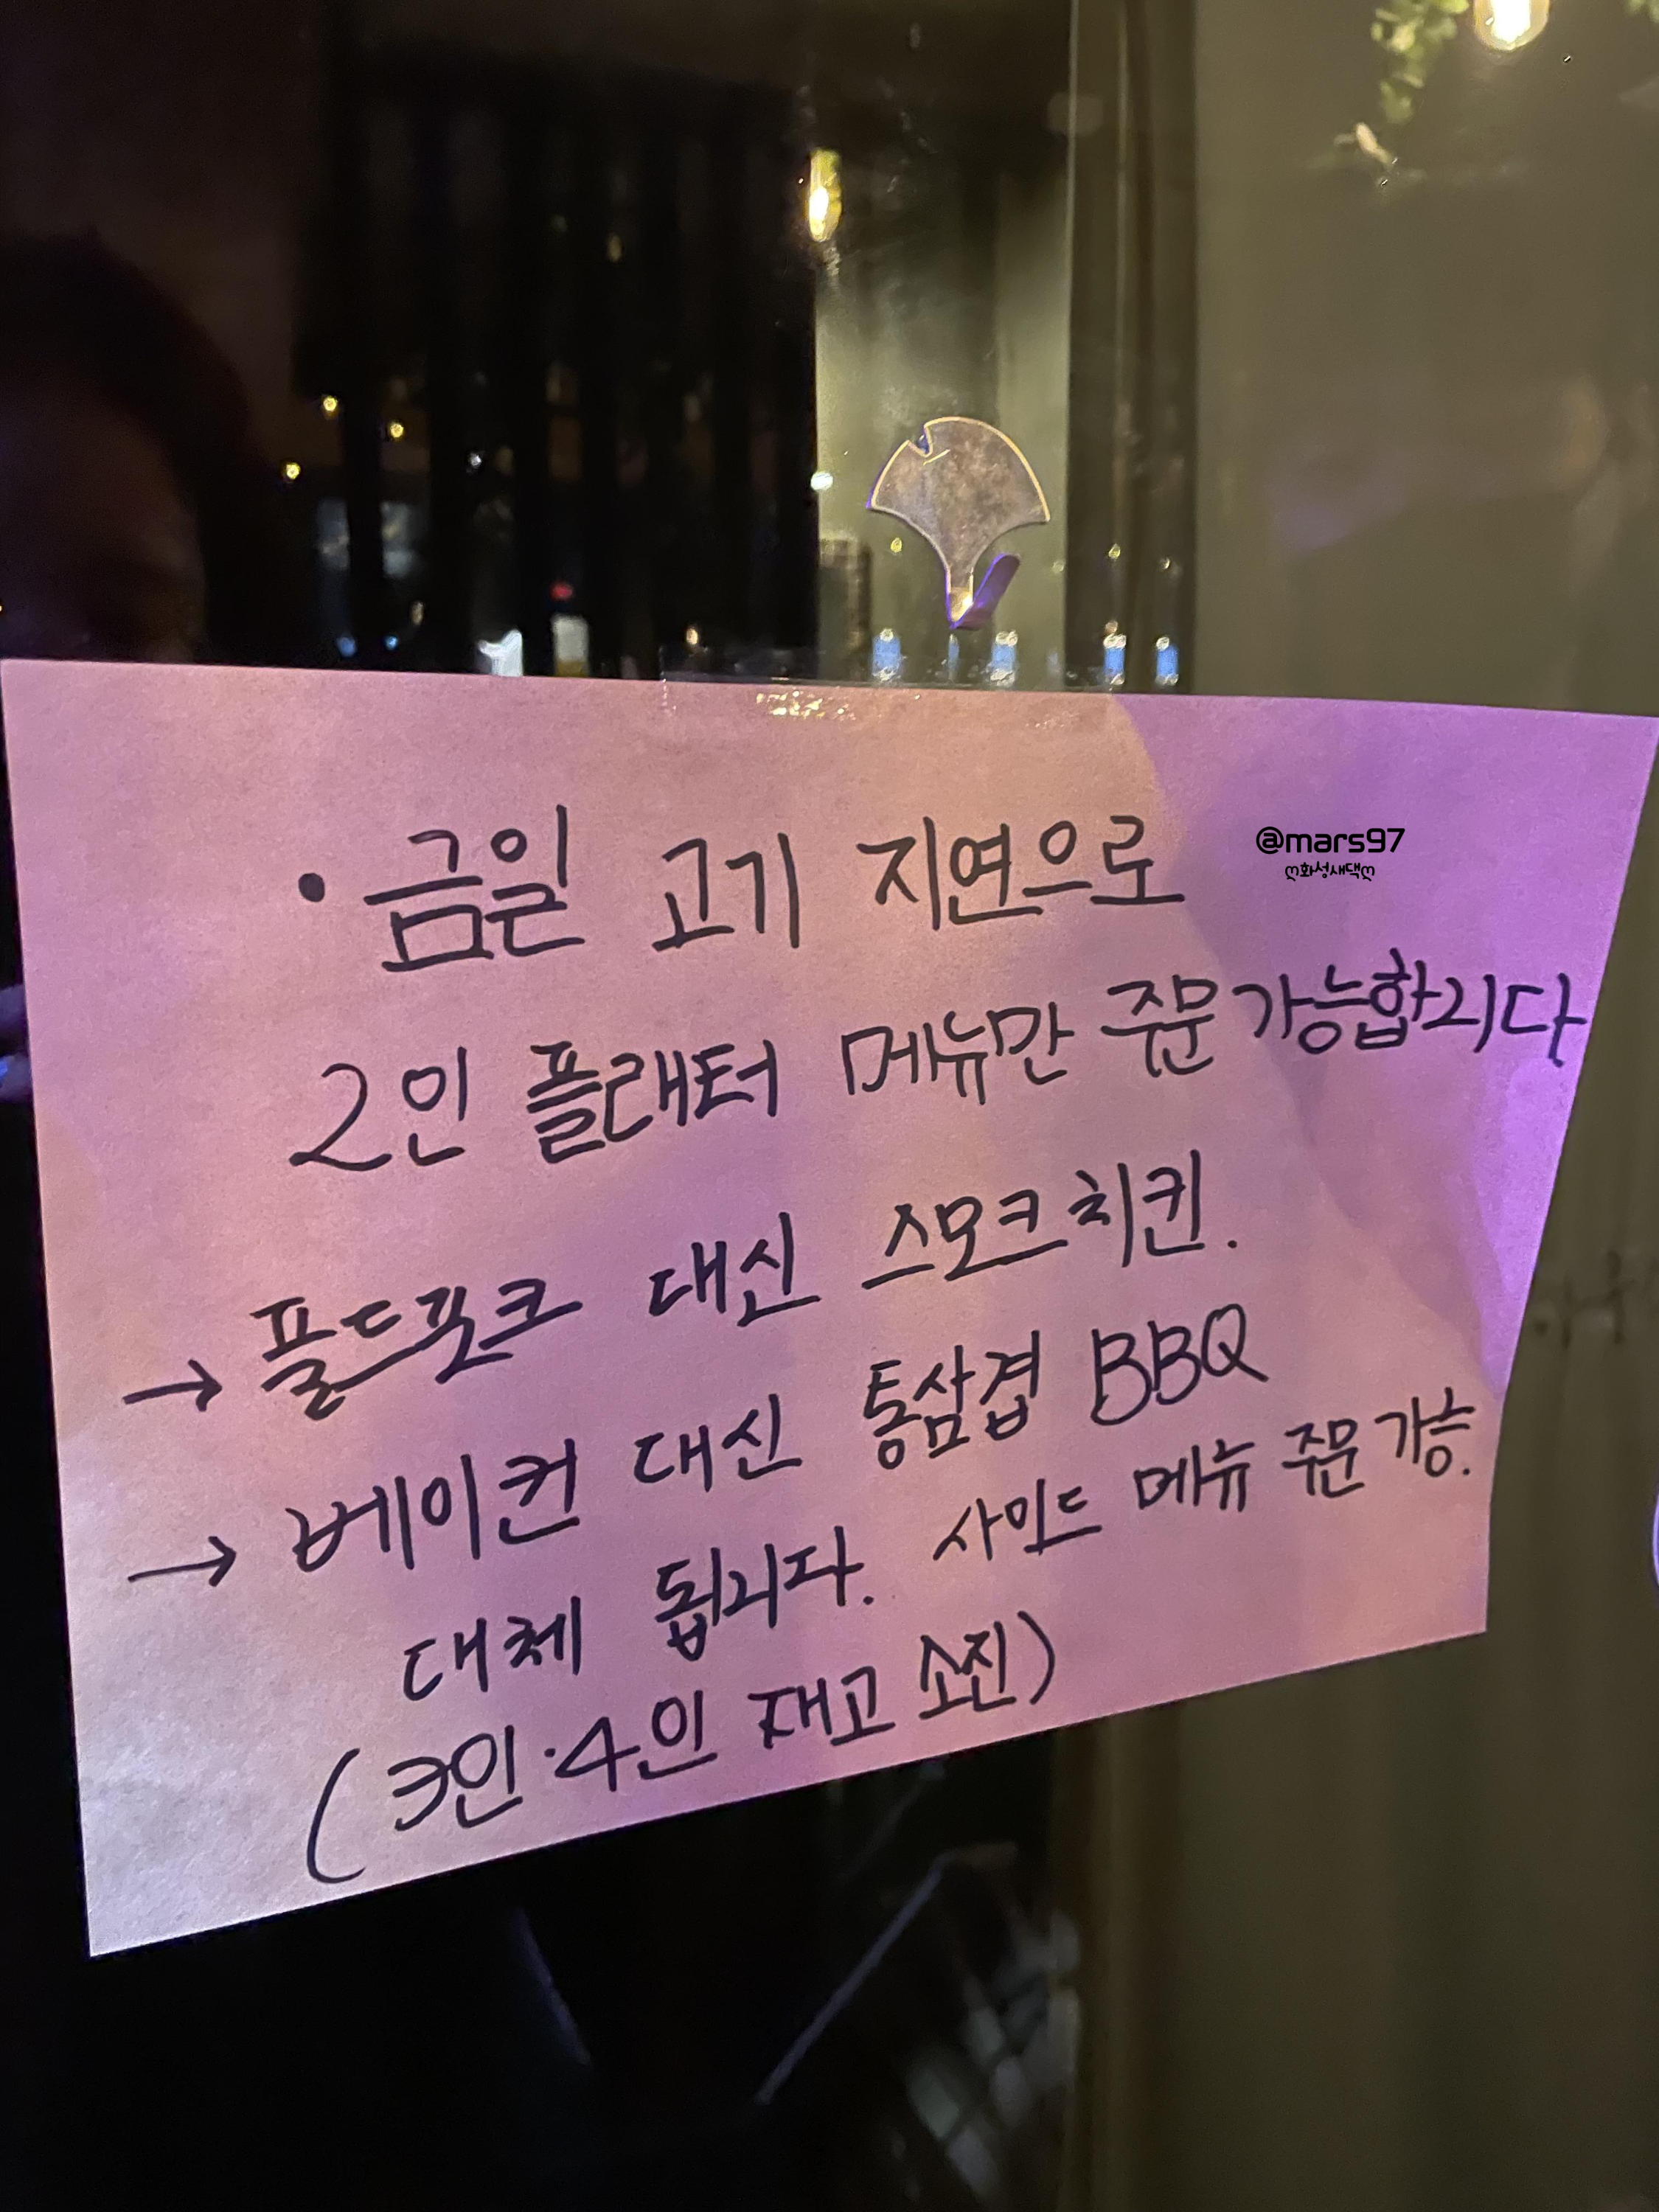 • 금일 고기 지연으로
@mars97
ღ화성새댁ღ
2인 플래터 메뉴만 주문 가능합니다
→ 풀드포크 대신 스모크치킨.
→ 베이컨 대신 통삼겹 BBQ
대체 됩니다. 사이드 메뉴 주문 가능.
(3인·4인 재고 소진)